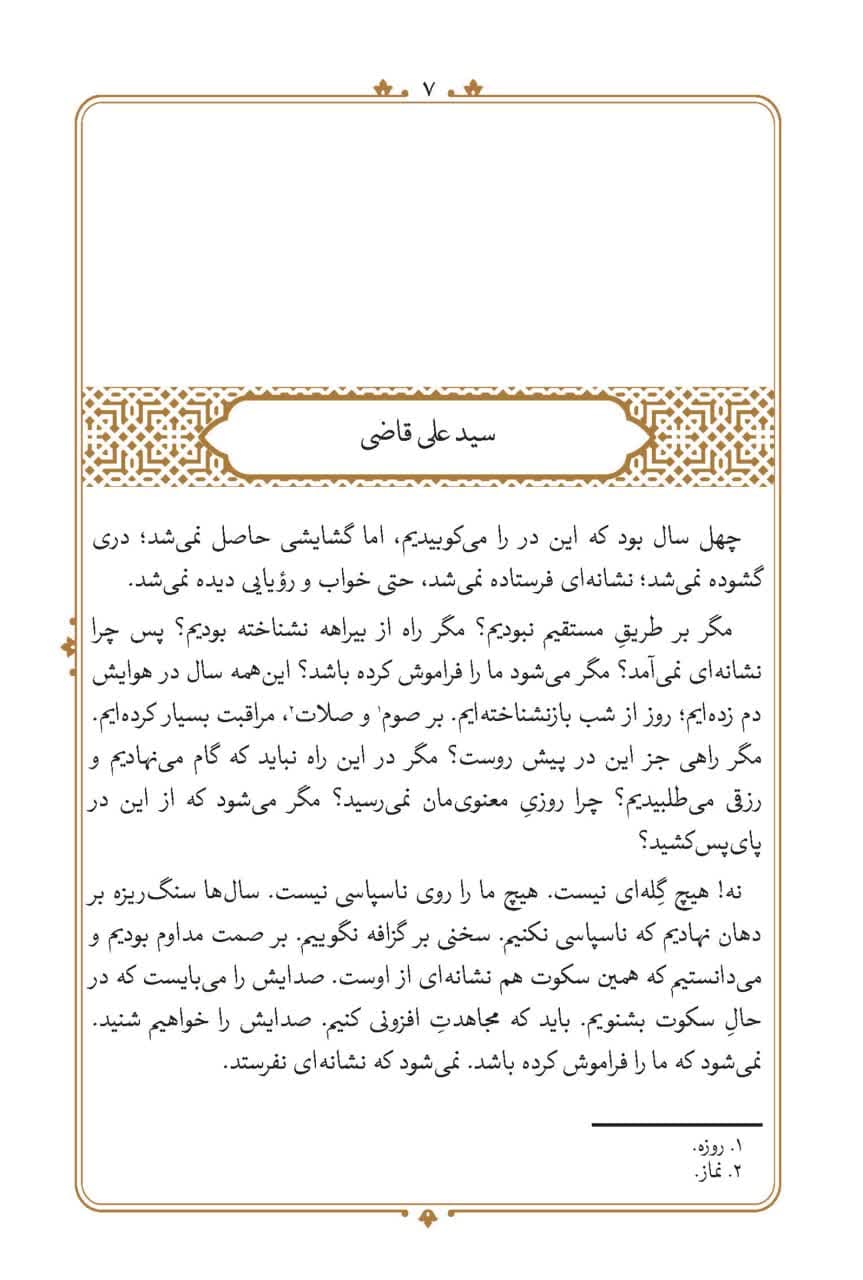 ۷
سید علی قاضی
چهل سال بود که این در را می‌کوبیدیم، اما گشایشی حاصل نمی‌شد؛ دری
گشوده نمی‌شد؛ نشانه‌ای فرستاده نمی‌شد، حتی خواب و رؤیایی دیده نمی‌شد.
مگر بر طریقِ مستقیم نبودیم؟ مگر راه از بیراهه نشناخته بودیم؟ پس چرا
نشانه‌ای نمی‌آمد؟ مگر می‌شود ما را فراموش کرده باشد؟ این‌همه سال در هوایش
دم زده‌ایم؛ روز از شب بازنشناخته‌ایم. بر صوم۱ و صلات۲، مراقبت بسیار کرده‌ایم.
مگر راهی جز این در پیش روست؟ مگر در این راه نباید که گام می‌نهادیم و
رزقی می‌طلبیدیم؟ چرا روزیِ معنوی‌مان نمی‌رسید؟ مگر می‌شود که از این در
پای‌پس‌کشید؟
نه! هیچ گِله‌ای نیست. هیچ ما را روی ناسپاسی نیست. سال‌ها سنگ‌ریزه بر
دهان نهادیم که ناسپاسی نکنیم. سخنی بر گزافه نگوییم. بر صمت مداوم بودیم و
می‌دانستیم که همین سکوت هم نشانه‌ای از اوست. صدایش را می‌بایست که در
حالِ سکوت بشنویم. باید که مجاهدتِ افزونی کنیم. صدایش را خواهیم شنید.
نمی‌شود که ما را فراموش کرده باشد. نمی‌شود که نشانه‌ای نفرستد.
۱. روزه.
۲. نماز.